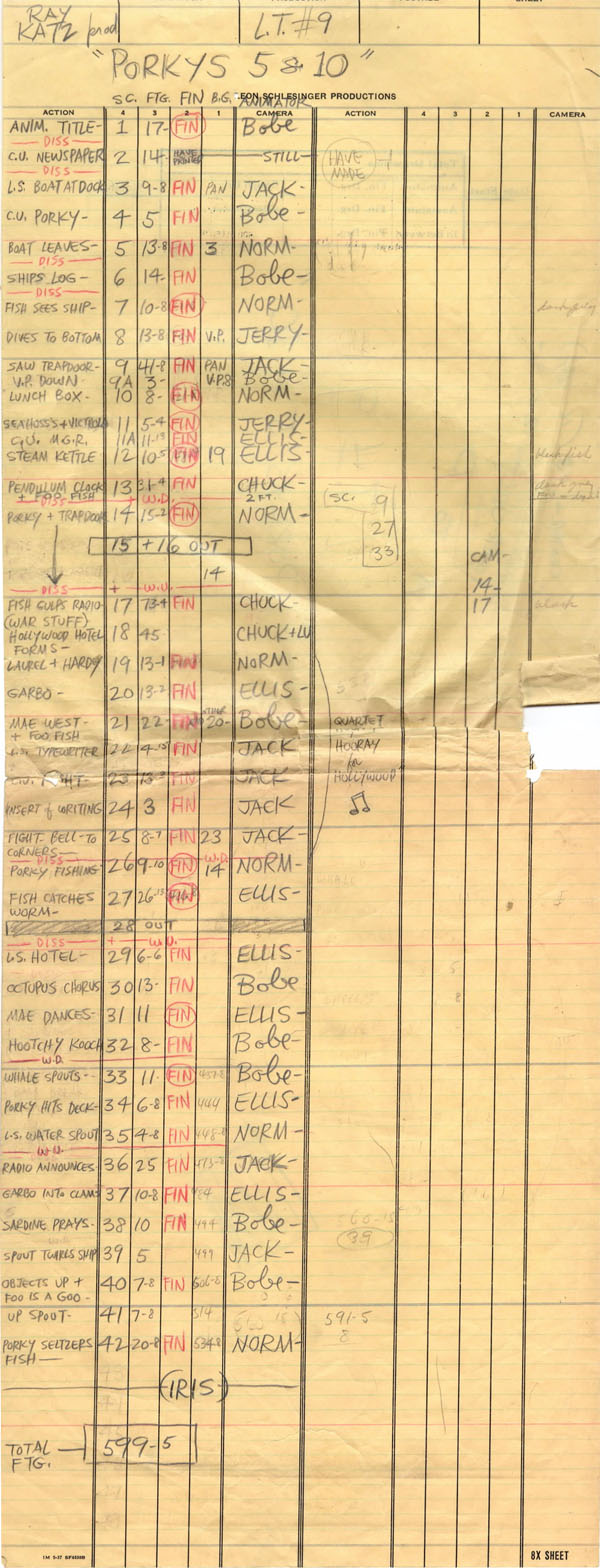 RAY KATZ prod L.T.#9
"PORKYS 5 & 10"
SC. FTG. FIN B.G. ANIMATOR
LEON SCHLESINGER PRODUCTIONS
ACTION 4 3 2 1 CAMERA ACTION 4 3 2 1 CAMERA
ANIM. TITLE- 1 17- FIN Bobe
DISS
C.U. NEWSPAPER 2 14- HAVE STILL- HAVE MADE
DISS
L.S. BOAT AT DOCK 3 9-8 FIN PAN JACK-
C.U. PORKY- 4 5 FIN Bobe-
BOAT LEAVES- 5 13-8 FIN 3 NORM-
DISS
SHIPS LOG- 6 14- FIN Bobe-
DISS
FISH SEES SHIP- 7 10-8 FIN NORM-
DIVES TO BOTTOM 8 13-8 FIN V.P. JERRY-
SAW TRAPDOOR- 9 41-8 FIN PAN JACK-
V.P. DOWN- 9A 3- V.P.8 Bobe-
LUNCH BOX- 10 8- FIN NORM-
SEAHOSS'S+VICTROLA 11 5-4 FIN JERRY-
C.U. M.G.R. 11A 11-13 FIN ELLIS-
STEAM KETTLE 12 10-5 FIN 19 ELLIS-
PENDULUM CLOCK 13 31-4 FIN CHUCK-
+ FOO FISH 2 FT.
DISS + W.D.
PORKY + TRAPDOOR 14 15-2 FIN NORM-
SC. 9
27
33
15 + 16 OUT
14
CAM-
14-
17
DISS + W.U.
FISH GULPS RADIO 17 73-4 FIN CHUCK- black
(WAR STUFF)
HOLLYWOOD HOTEL 18 45- CHUCK+LU
FORMS-
LAUREL + HARDY 19 13-1 FIN NORM-
GARBO- 20 13-2 FIN ELLIS-
MAE WEST- 21 22- FIN 20- Bobe-
+ FOO FISH
QUARTET
"HOORAY
for
HOLLYWOOD"
L.S. TYPEWRITER 22 4-15 FIN JACK
C.U. FIGHT- 23 13- FIN JACK-
INSERT of WRITING 24 3 FIN JACK
FIGHT- BELL-TO 25 8-7 FIN 23 JACK-
CORNERS-
DISS W.D.
PORKY FISHING 26 9-10 FIN 14 NORM-
FISH CATCHES 27 26-15 FIN ELLIS-
WORM-
28 OUT
DISS + W.U.
L.S. HOTEL- 29 6-6 FIN ELLIS-
OCTOPUS CHORUS 30 13- FIN Bobe
MAE DANCES- 31 11 FIN ELLIS-
HOOTCHY KOOCH 32 8- FIN Bobe-
W.D.
WHALE SPOUTS- 33 11- FIN 437-8 Bobe-
PORKY HITS DECK- 34 6-8 FIN 444 ELLIS-
L.S. WATER SPOUT 35 4-8 FIN 448-8 NORM-
W.U.
RADIO ANNOUNCES- 36 25 FIN 473-8 JACK-
GARBO INTO CLAM 37 10-8 FIN 484 ELLIS-
SARDINE PRAYS- 38 10 FIN 494 Bobe-
SPOUT TWIRLS SHIP 39 5 499 JACK- 39
OBJECTS UP + 40 7-8 FIN 506-8 Bobe-
FOO IS A GOO-
UP SPOUT- 41 7-8 514 591-5
8
PORKY SELTZERS 42 20-8 FIN 534-8 NORM-
FISH-
(IRIS)
TOTAL FTG. 599-5
8X SHEET